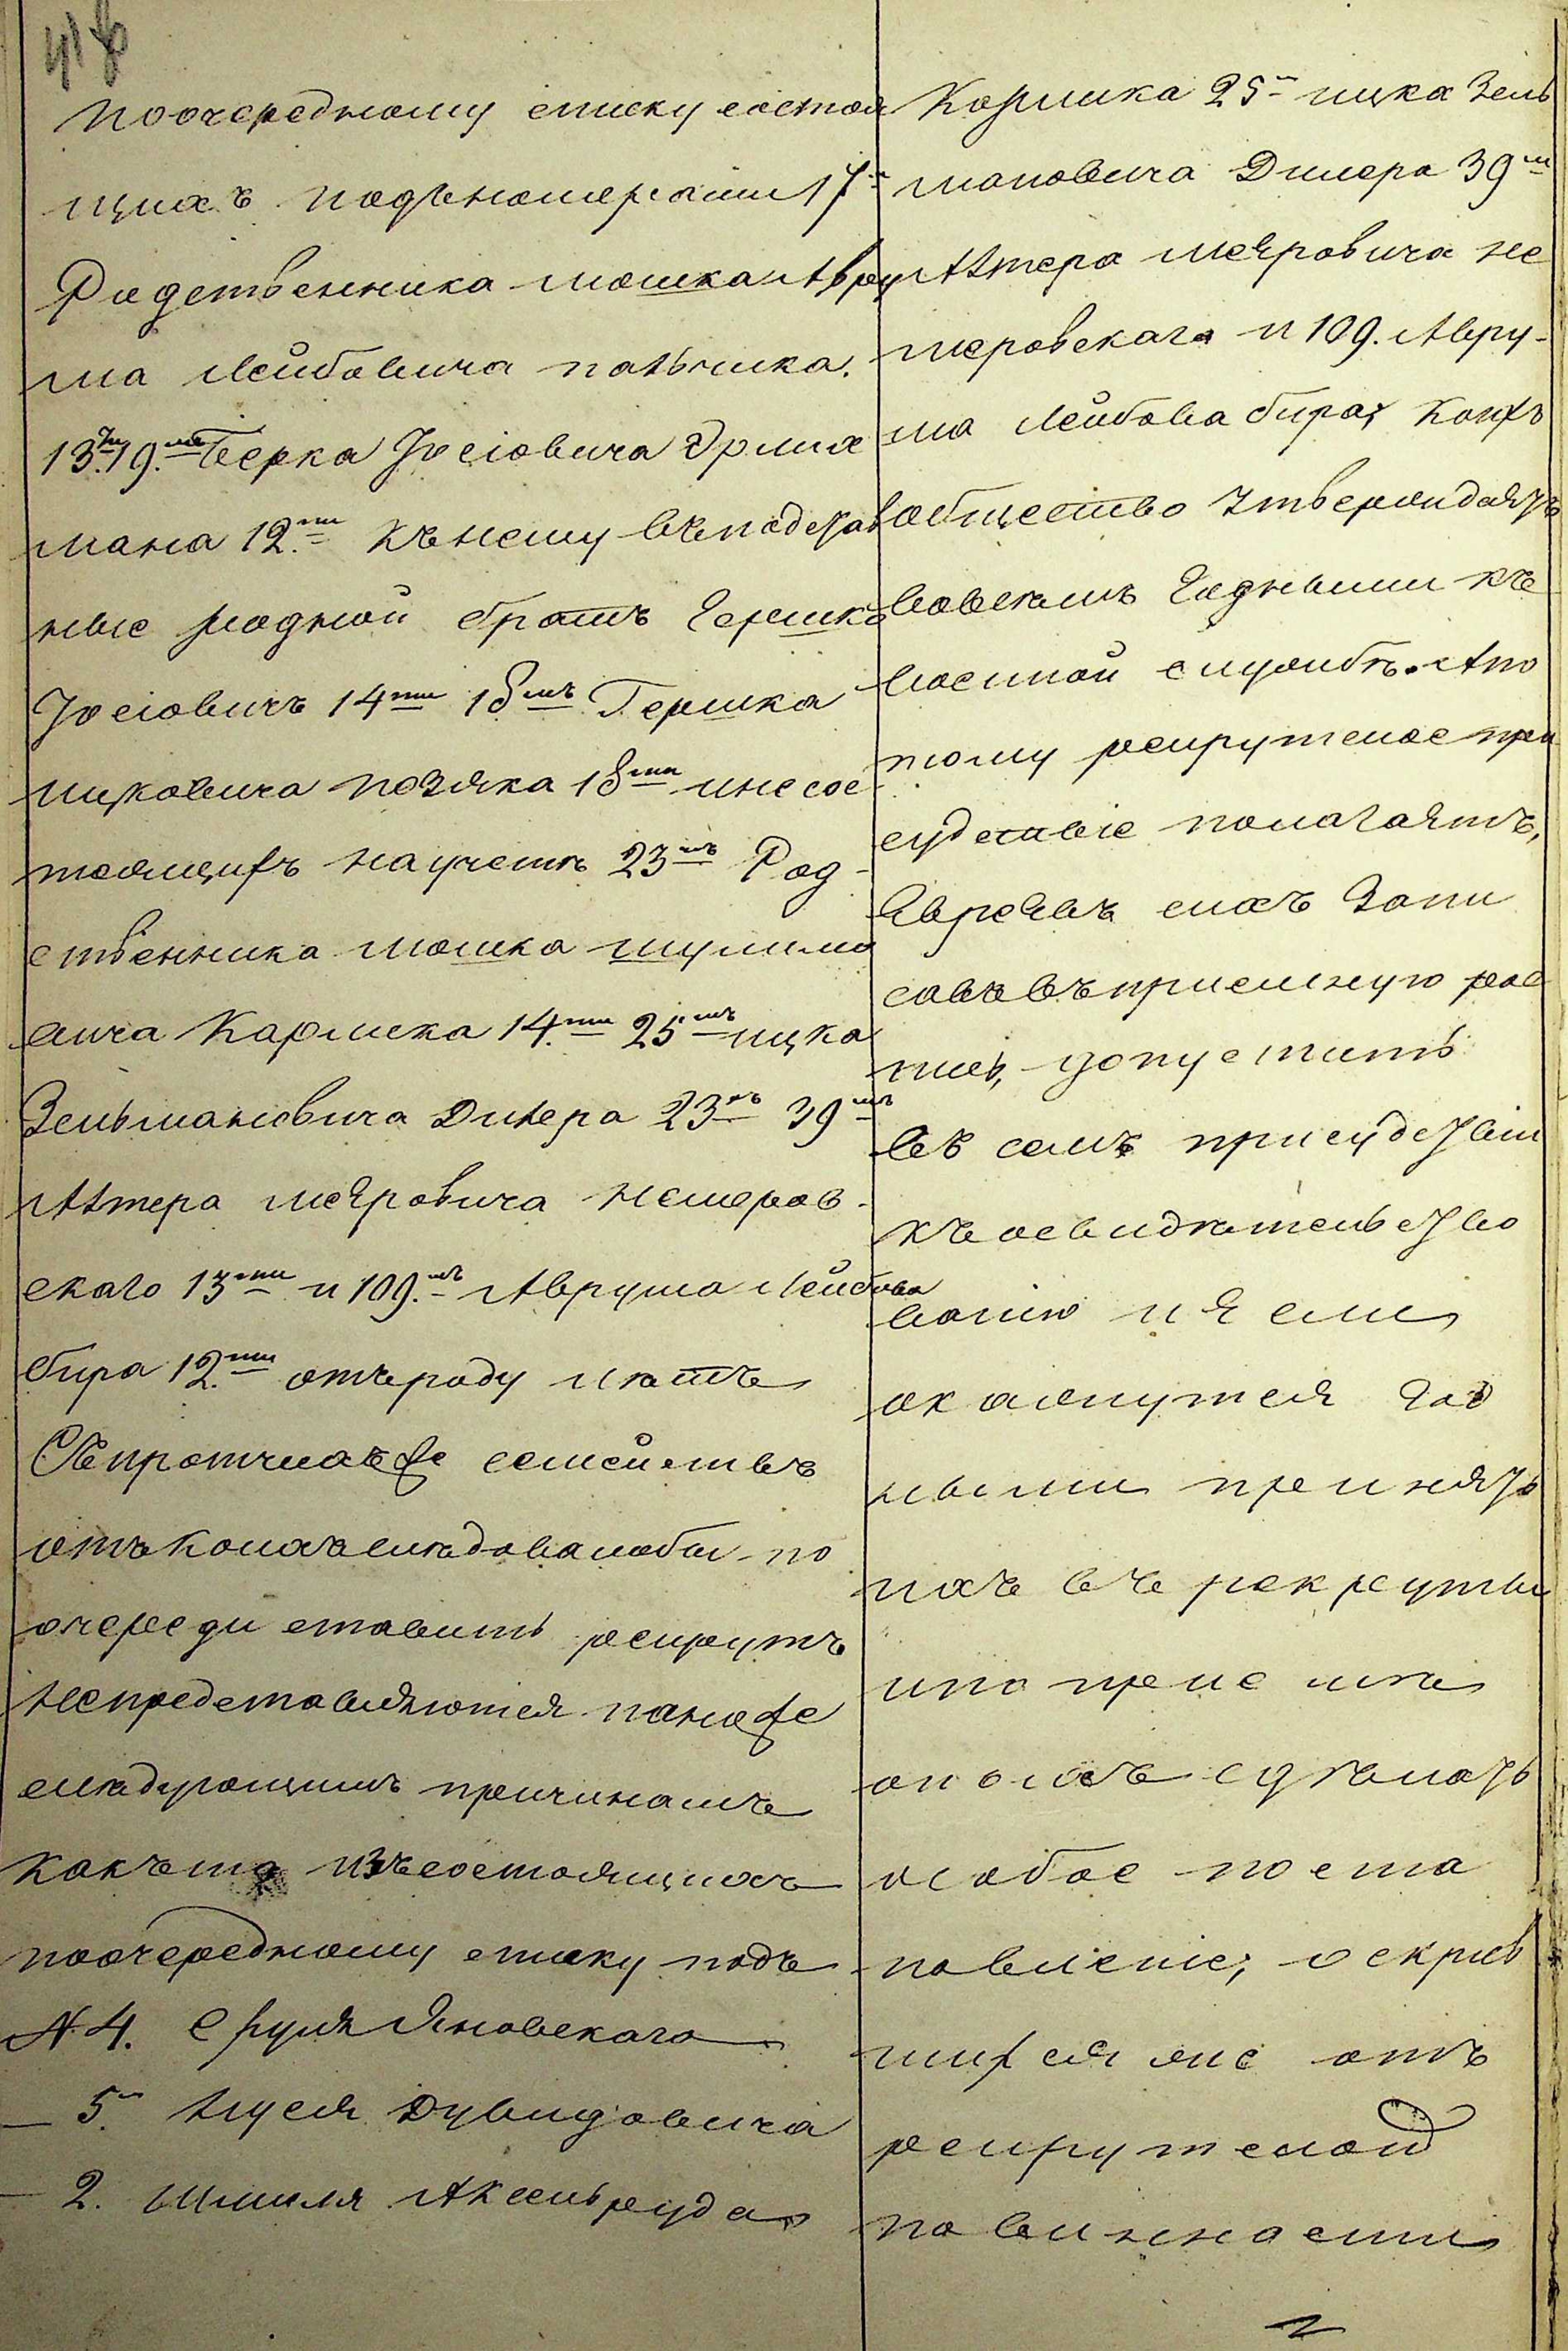 поочередному списку состоя
щихъ подъ номерами 17-
Родственника мошка Авру
ма Лейбовича пальчика.
13ти 19.мъ Берка Іосіовича Эрли
мана 12.ти къ нему въ подстав
ные родной братъ Гершко
Іосіовичъ 14ти 18мъ Гершка
ицковича позяка 18ти и не сос
тоящихъ на учетѣ 23мъ Род-
ственника мошка шулимо
вича Кармека 14.ти 25мъ ицка
Зельмановича Динера 23хъ 39мъ
Алтера меяровича немеров-
скаго 13ти и 109.мъ Аврума Лейбова
бира 12.ти отъ роду лѣтъ
Съ протчихъ же семействъ
отъ коихъ слѣдовало бы по
очереди ставить рекрутъ
не представляются по ниже
слѣдующимъ причинамъ
какъ то изъ состоящихъ
по очередному списку подъ
№ 4. Сруля Яновскаго
— 5. Нуся Дувидовича
— 2. Шмиля Аксельруда
Кармика 25- ицка Зель
мановича Динера 39ти
Алтера меяровича не
меровскаго и 109. Авру-
ма Лейбова бира, коихъ
общество утверждаетъ
вовсемъ годными къ
военной службѣ. А по
тому рекрутское при
судствіе полагаетъ,
Евреевъ сихъ запи
савъ въ приемную рос
пись, допустить
въ семъ присудствіи
къ освидѣтельство
ванію и если
окажутся год
ными принять
ихъ въ рекруты
и по приемѣ
о коихъ сдѣлать
особое поста
новленіе; о скрыв
шихся же отъ
рекрутской
повинности